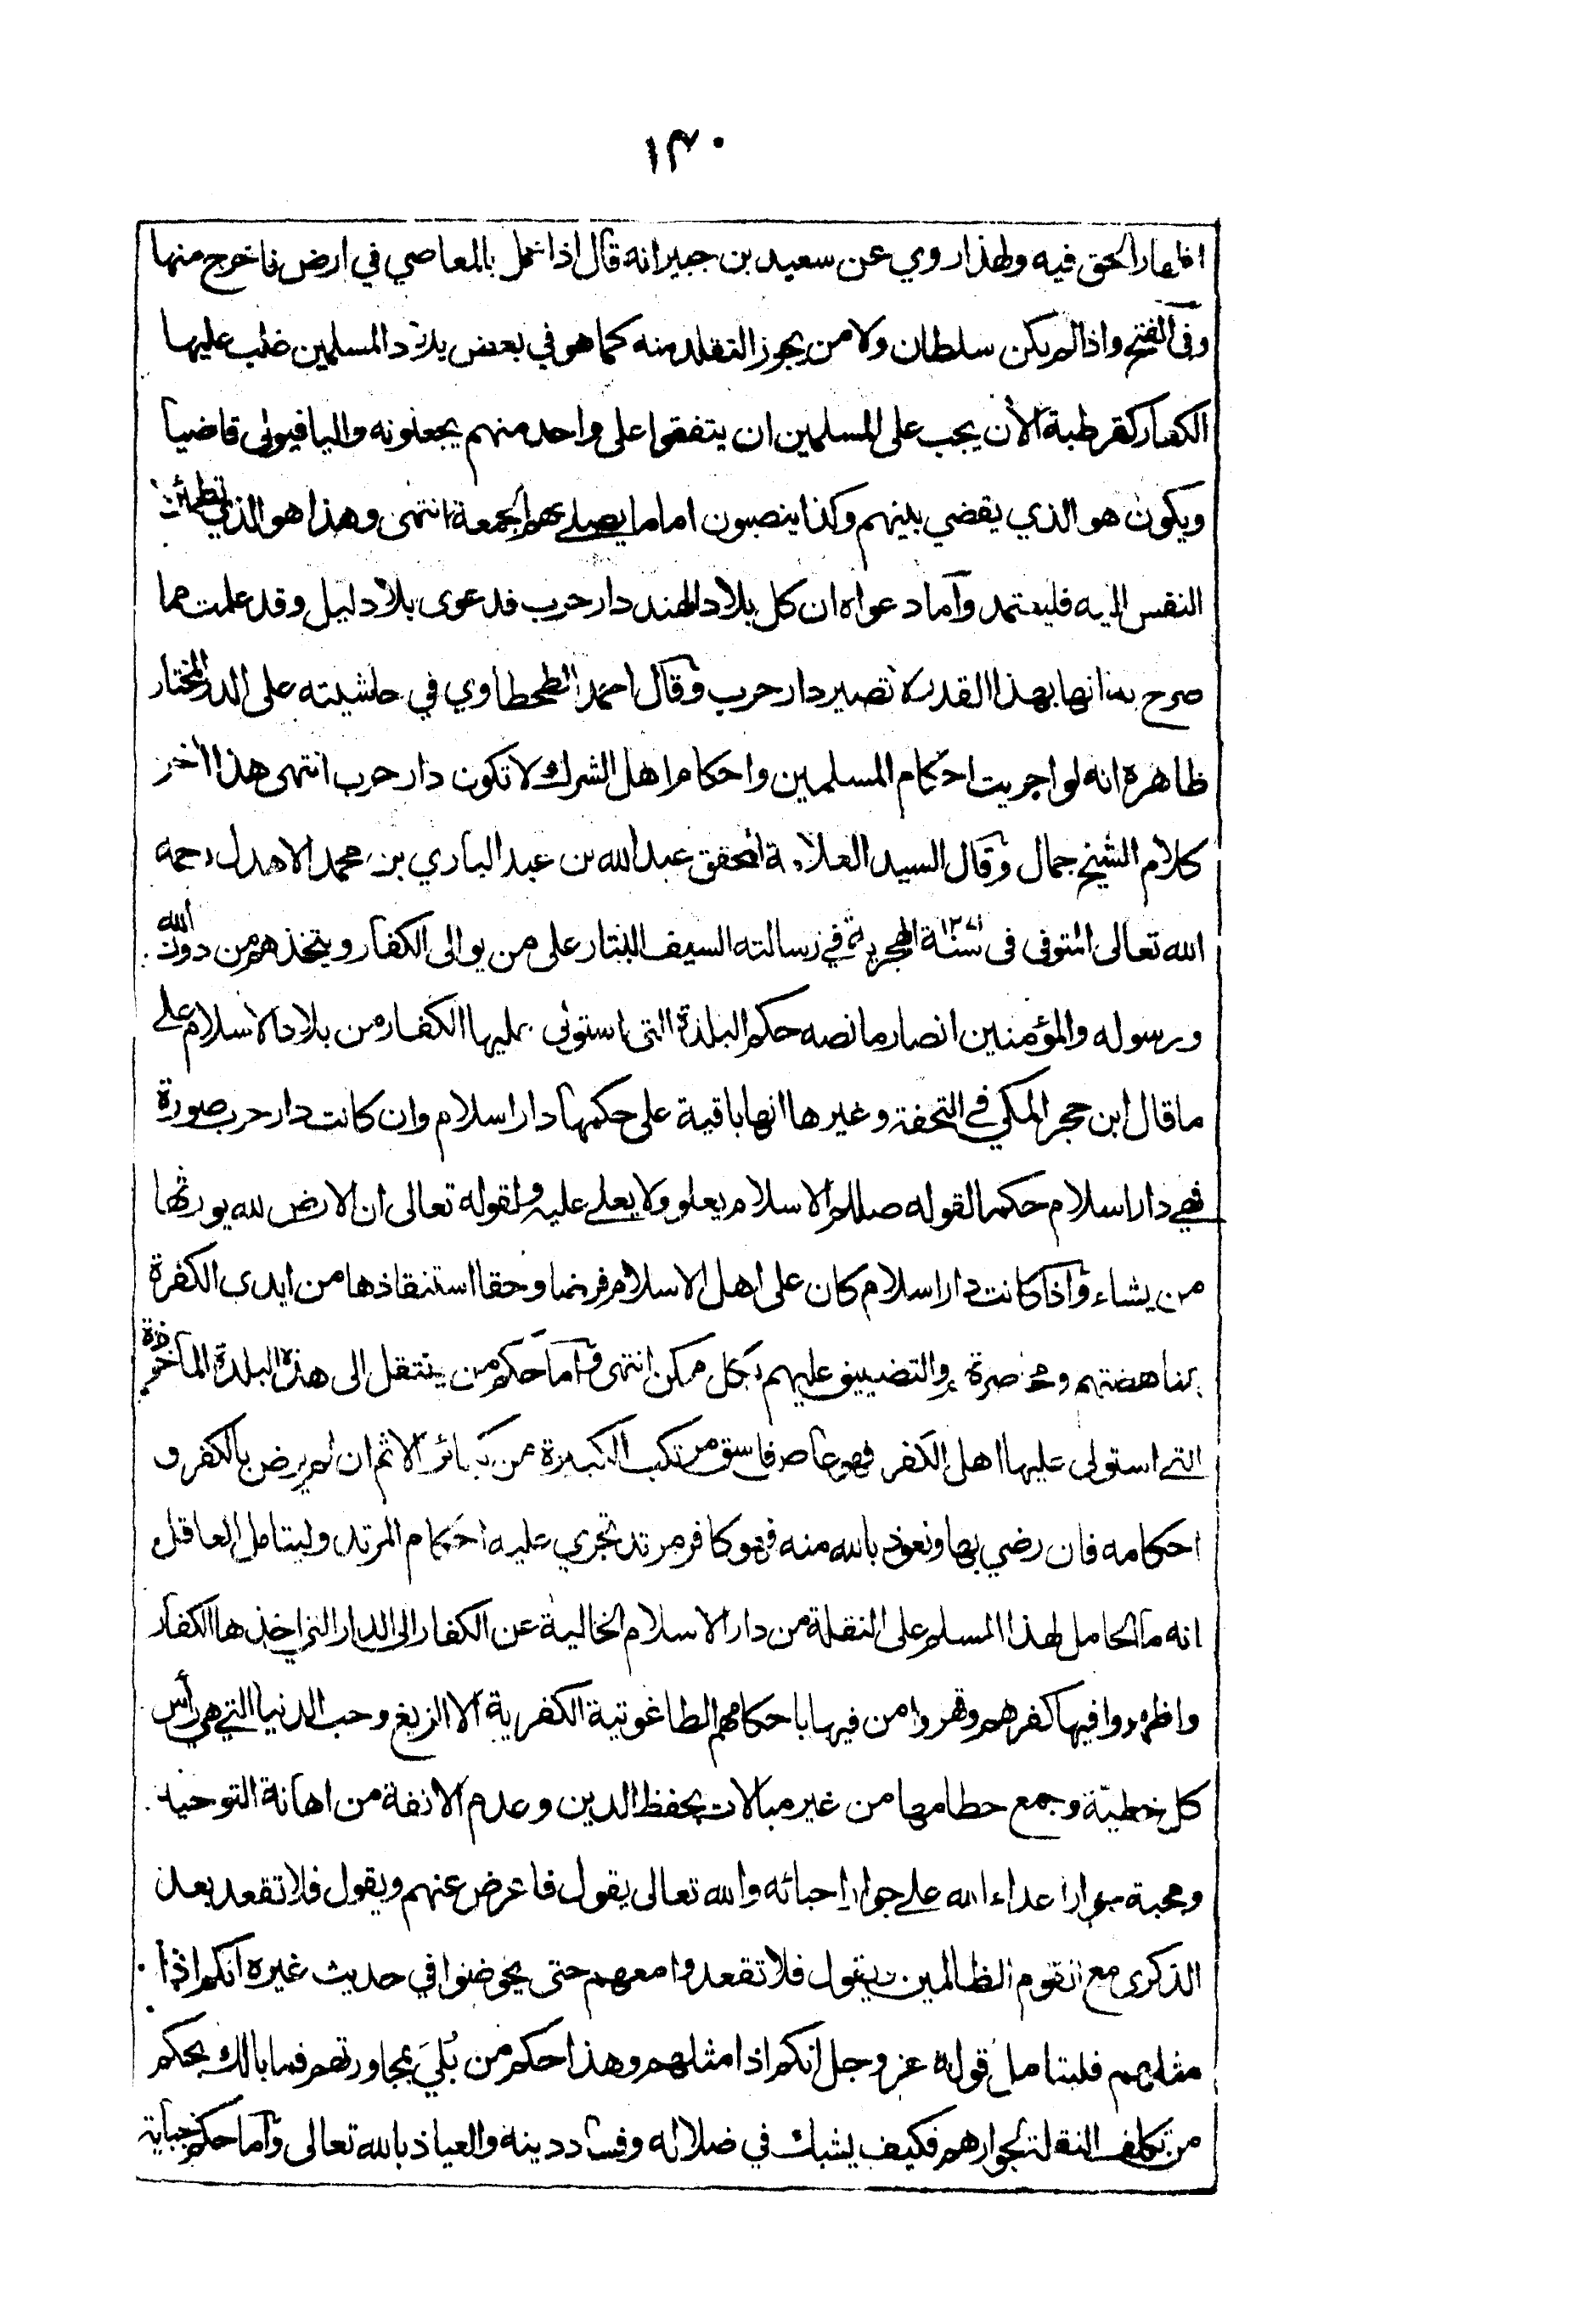 ١٣٠
اظهار الحق فيه ولهذا روي عن سعيد بن جبير انه قال اذا عمل بالمعاصي في ارض فاخرج منها
وفى الفتح واذا لم يكن سلطان ولا من يجوز التقلد منه كما هو في بعض بلاد المسلمين غلب عليها
الكفار كقرطبة الأن يجب على المسلمين ان يتفقوا على واحد منهم يجعلونه واليا فيولى قاضيا
ويكون هو الذي يقضي بينهم وكذا ينصبون اماما يصلي بهم الجمعة انتهى وهذا هو الذي تطمئن
النفس اليه فليعتمد وآما دعواه ان كل بلاد الهند دار حرب فدعوى بلا دليل وقد علمت مما
صرح به انها بهذا القدر لا تصير دار حرب وقال احمد الطحطاوي في حاشيته على الدر المختار
ظاهره انه لو اجريت احكام المسلمين واحكام اهل الشرك لا تكون دار حرب انتهى هذا اٰخر
كلام الشيخ جمال وقال السيد العلامة المحقق عبد الله بن عبد الباري بن محمد الاهدل رحمه
الله تعالى المتوفى فى سنة ١٢٧١ الهجرية في رسالته السيف البتار على من يوالى الكفار ويتخذهم من دون الله
ورسوله والمؤمنين انصار ما نصه حكم البلدة التى استولى عليها الكفار من بلاد الاسلام على
ما قال ابن حجر المكي في التحفة وغيرها انها باقية على حكمها دار اسلام وان كانت دار حرب صورة
فهي دار اسلام حكما لقوله صللم الاسلام يعلو ولا يعلى عليه ولقوله تعالى ان الارض لله يورثها
من يشاء واذا كانت دار اسلام كان على اهل الاسلام فرضا وحقا استنقاذها من ايدى الكفرة
بمناهضتهم والتضييق عليهم بكل ممكن انتهى وآما حكم من ينتقل الى هذه البلدة المأخوذة
التى استولى عليها اهل الكفر فهو عاص فاسق مرتكب الكبيرة من كبائر الاثم ان لم يرض بالكفر و
احكامه فان رضي بها ونعوذ بالله منه فهو كافر مرتد تجري عليه احكام المرتد وليتامل العاقل
انه ما الحامل لهذا المسلم على النقلة من دار الاسلام الخالية عن الكفار الى الدار التي اخذها الكفار
واظهروا فيها كفرهم وقهروا من فيها باحكامهم الطاغوتية الكفرية الا الزيغ وحب الدنيا التي هي رأس
كل خطيّة وجمع حطامها من غير مبالات بحفظ الدين وعدم الانفة من اهانة التوحيد
ومحبة جوار اعداء الله على جوار احبائه والله تعالى يقول فاعرض عنهم ويقول فلا تقعد بعد
الذكرى مع القوم الظالمين ويقول فلا تقعدوا معهم حتى يخوضوا في حديث غيره انكم اذا
مثلهم فليتامل قوله عز وجل انكم اذا مثلهم وهذا حكم من بُليَ بمجاورتهم فما بالك بحكم
من تكلف النقلة لجوارهم فكيف يشك في ضلاله وفساد دينه والعياذ بالله تعالى وآما حكم خباية